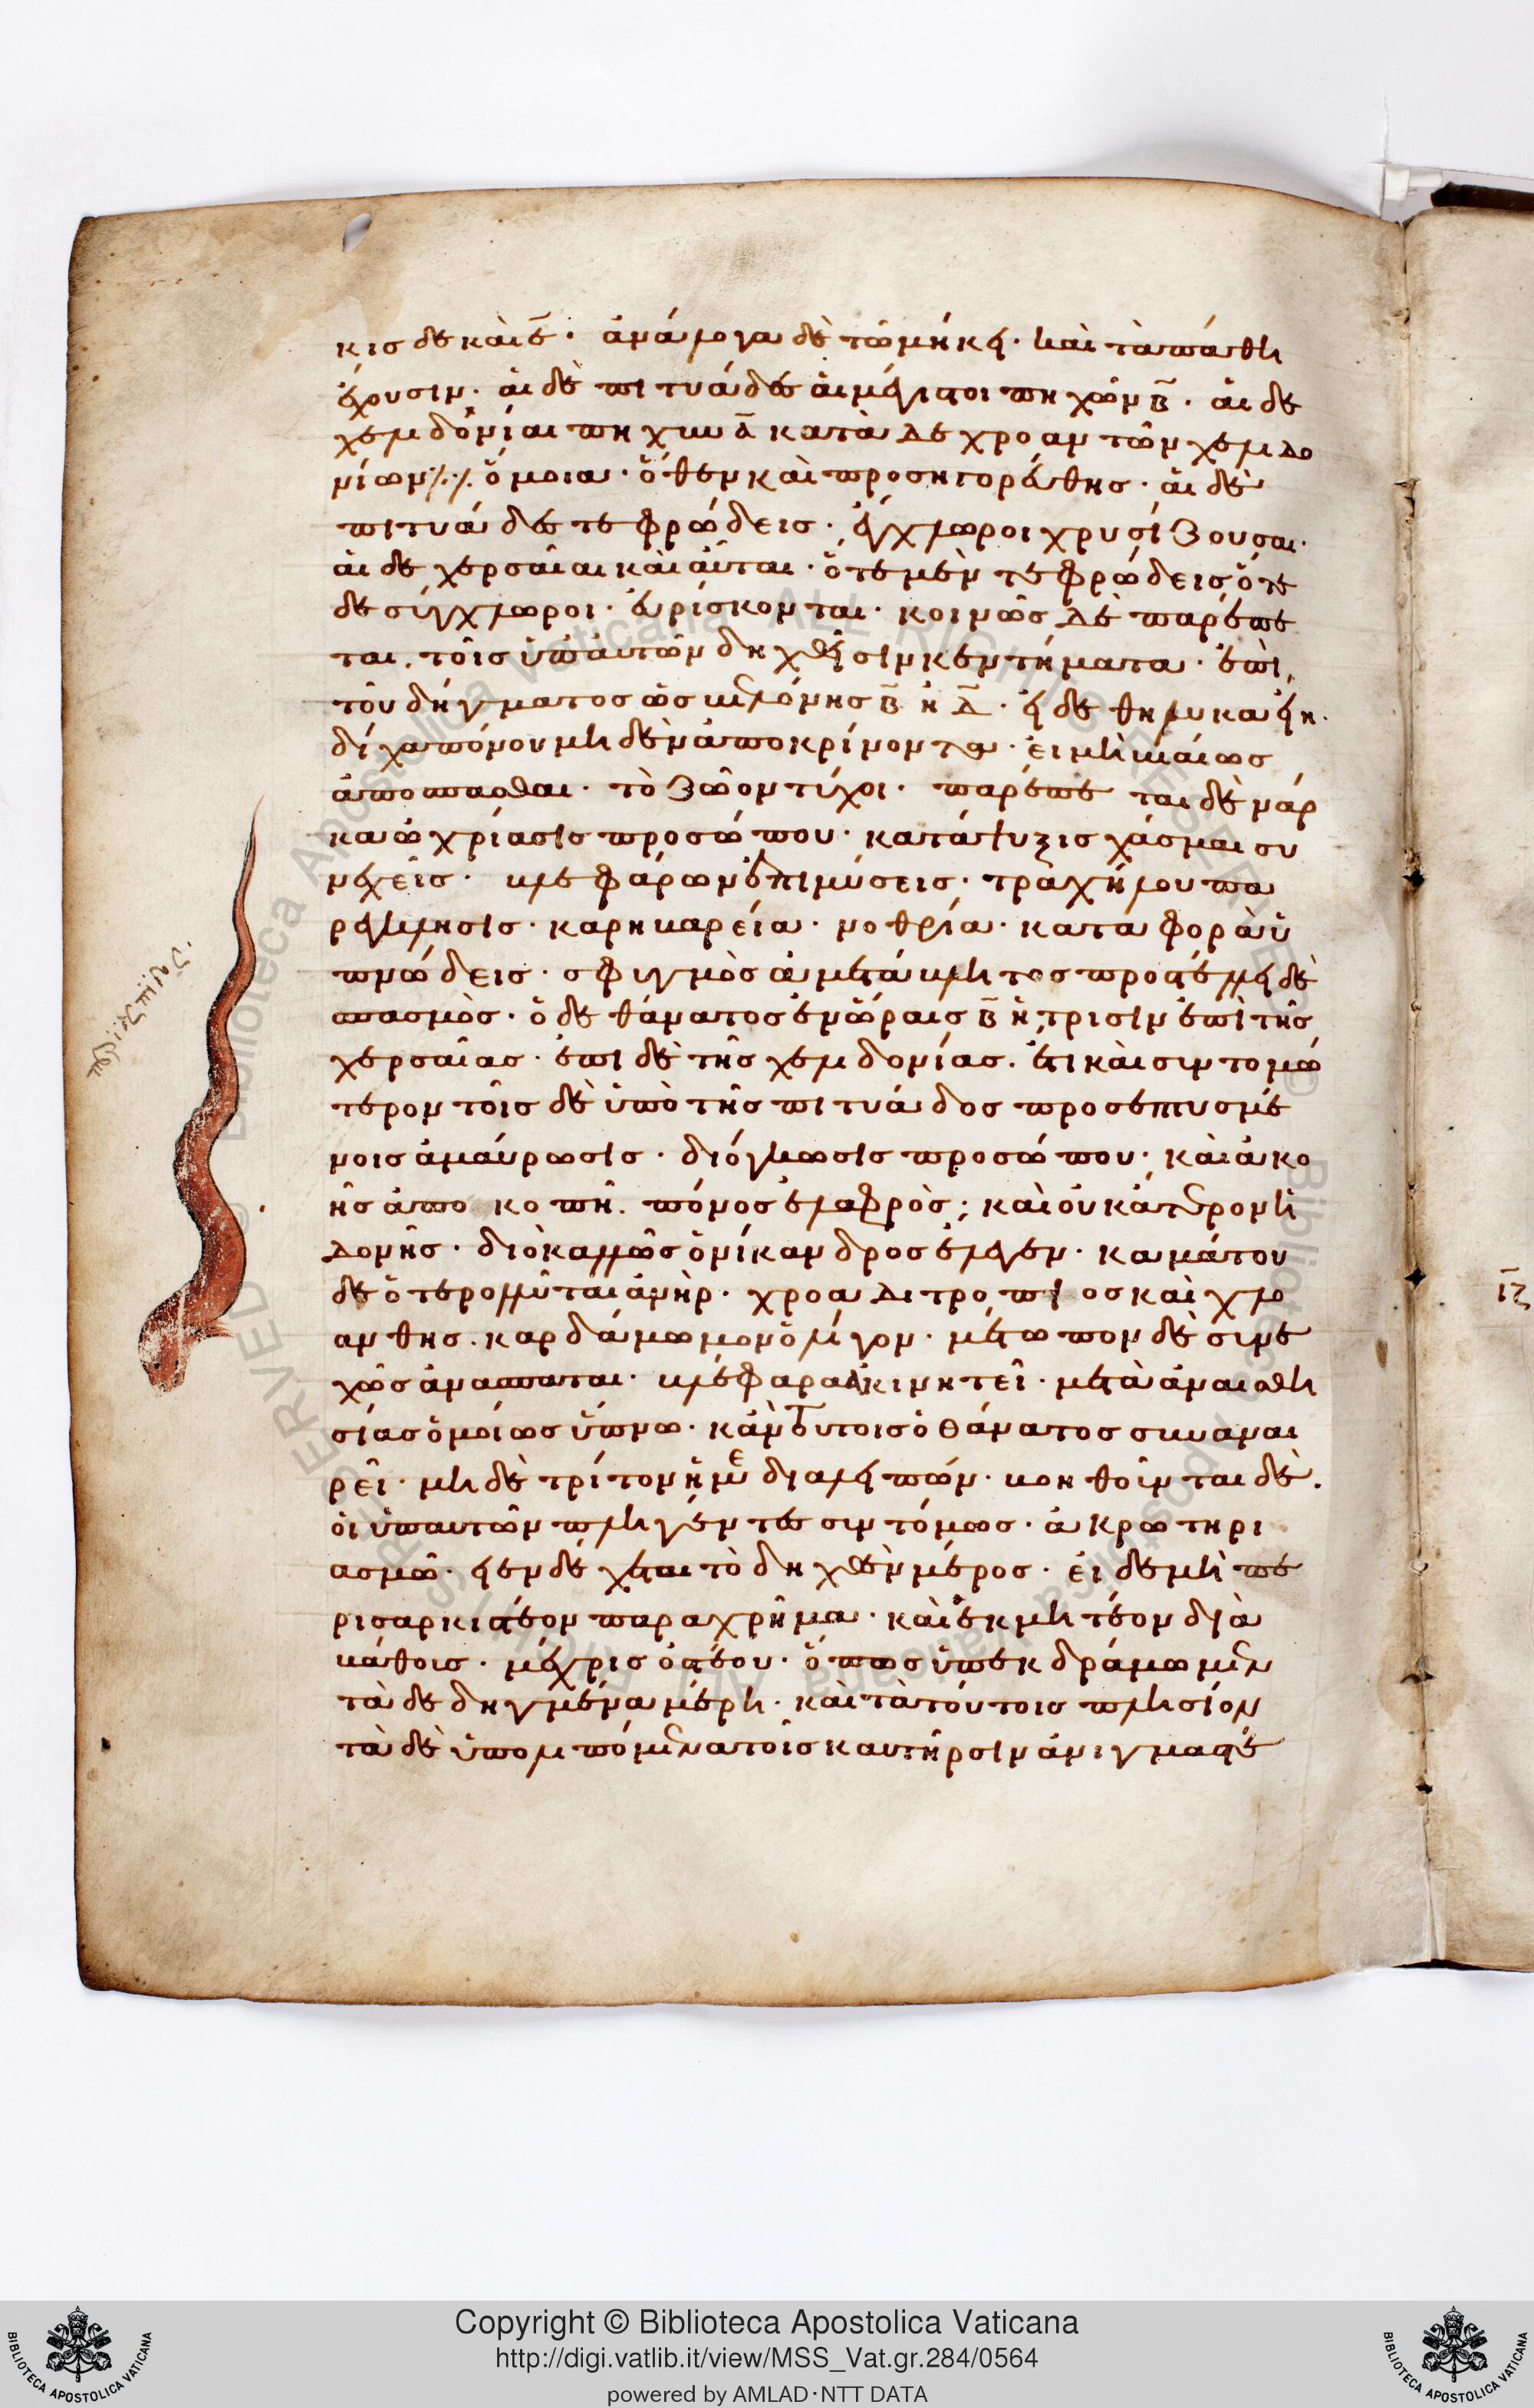 κις δε καὶ ε̄· ἀνάλογα δὲ τῶ μήκει· καὶ τὰ πάθη
ἔχουσιν· αἱ δὲ πιτυάδες αἱ μέγιστοι πηχῶν β̄· αἱ δε
χελιδόνιαι πηχυ ᾱ κατὰ δε χροαν τῶν χελιδο
νίων ὅμοια· ὅθεν καὶ προσηγορεύθης· αἱ δὲ
πιτυάδες τεφρώδεις· εὔχλωροι χρυσίζουσαι·
αἱ δε χερσαῖαι καὶ αὗται· ὅτε μὲν τεφρώδεις ὅτε
δε σύγχλωροι· εὑρίσκονται· κοινῶς δὲ παρέπε
ται. τοῖς ὑπ' αὐτῶν δηχθεῖσιν κεντήματα· ἐπὶ
τοῦ δήγματος ὡς βελόνης β̄ ἢ δ̄· εἰ δε θηλυκα εἴη·
δίχα πόνου μηδὲν ἀποκρίνοντα· εἰ μὴ βιαίως
ἀποσπασθαι· τὸ ζῶον τύχοι· παρέπε ται δὲ νάρ
κα ὠχρίασις προσώπου· κατάψυξις χάσμαι συ
νεχεῖς· βλεφάρων ἐπιμύσεις· τραχήλου πα
ρέγκλησις· καρηβαρεία· νοθρία· καταφορὰ ὑ
πνώδεις· σφυγμὸς ἀμετάβλητος προστέλλει δὲ
σπασμὸς· ὁ δε θάνατος ἐν ὥραις β̄ ἢ τρισὶν ἐπὶ τῆς
χερσαῖας· ἐπι δὲ τῆς χελιδονίας. ἔτι καὶ συντομώ
τερον τοῖς δὲ ὑπὸ τῆς πιτυάδος προσεπτυσμέ
νοις ἀμαύρωσις· διόγκωσις προσώπου· καὶ ἀκο
ῆς ἀποκοπῆ. πόνος ἐλαφρὸς; καὶ οὐκ ἄτερον ἡ
δονῆς· διὸ καλλῶς ὁ νίκανδρος ἔλεγεν· καμάτου
δε ὅτερ ὄλλυται ἀνὴρ· χροα δι τροπιος καὶ χλο
ανθης. καρδάμωμον ὀλίγον· μέτωπον δὲ συνε
χῶς ἀνασπαται· βλέφαρα ἀκινητεῖ· μετὰ ἀναισθη
σίας ὁμοίως ὕπνω· κἀν τούτοις ὁ θάνατος συναναι
ρεῖ· μὴ δὲ τρίτον ἡμε διαλειπών· βοηθοῖνται δὲ.
οἱ ὑπ αυτῶν πληγέντες συντόμως· ἀκρωτηρι
ασμῶ· εἰ ενδέχεται τὸ δηχθὲν μέρος· εἰ δε μὴ πε
ρισαρκιστέον παραχρῆμα· καὶ ἐκμητέον διὰ
βάθοις· μέχρις ὀστέου· ὅπως ὑπεκδράμωμεν
τὰ δεδηγμένα μέρη· καὶ τὰ τούτοις πλησίον
τὰ δὲ ὑπολιπόμενα τοῖς καυτῆρσιν ἀνιγμαστέ
ιζ̄
Copyright © Biblioteca Apostolica Vaticana
http://digi.vatlib.it/view/MSS_Vat.gr.284/0564
powered by AMLAD·NTT DATA
BIBLIOTECA APOSTOLICA VATICANA
BIBLIOTECA APOSTOLICA VATICANA